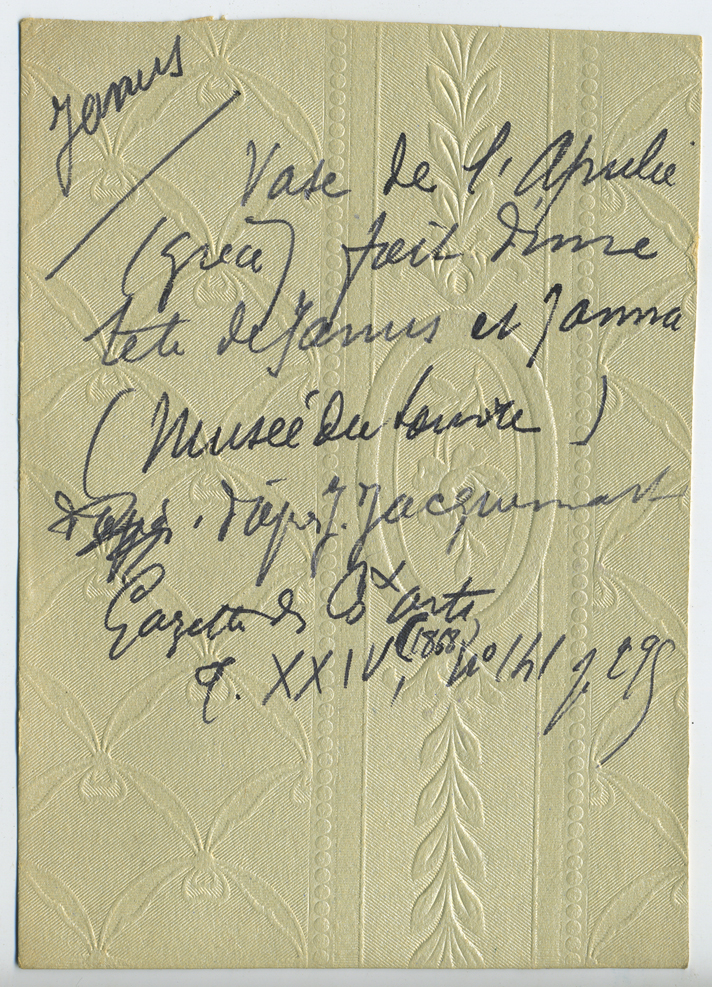 Janus
Vase de l'Apulie
(grèce) fait d'une
tete de Janus et Janna
(Musée du Louvre)
d'apr. J. Jacquemart
Gazette des Bx arts
T. XXIV, (1868) n° 141 p. 295